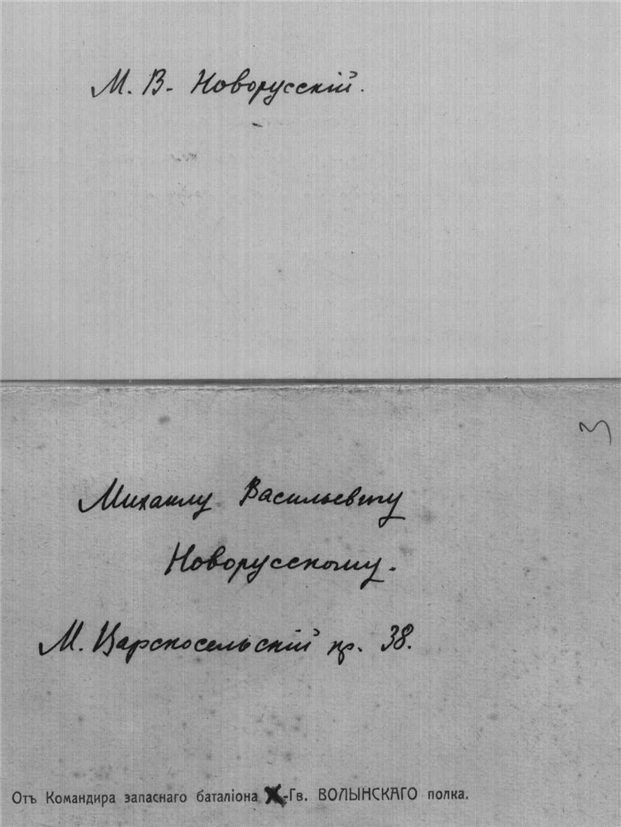 М. В. Новорусскій.
3
Михаилу Васильевичу
Новорусскому.
М. Царскосельскій пр. 38.
Отъ Командира запаснаго баталіона -Гв. ВОЛЫНСКАГО полка.